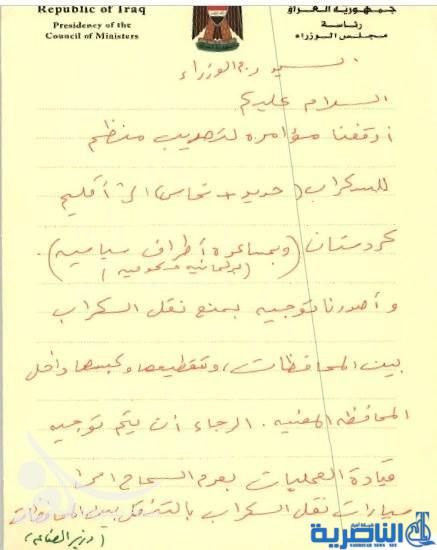 Republic of Iraq
Presidency of the
Council of Ministers
جمهورية العراق
رئاسة
مجلس الوزراء
السيد ر. م الوزراء
السلام عليكم
أوقفنا مؤامره لتهريب منظم
للسكراب (حديد + نحاس) الى أقليم
كردستان (وبمساعدة أطراف سياسيه).
(برلمانيه وحكوميه)
وأصدرنا توجيه بمنع نقل السكراب
بين المحافظات، وتقطيعها وكبسها داخل
المحافظه المعنيه. الرجاء أن يتم توجيه
قيادة العمليات بعدم السماح
سيارات نقل السكراب بالتنقل بين المحافظات
(وزير الصناعه)
شبكة أخبار
الناصرية